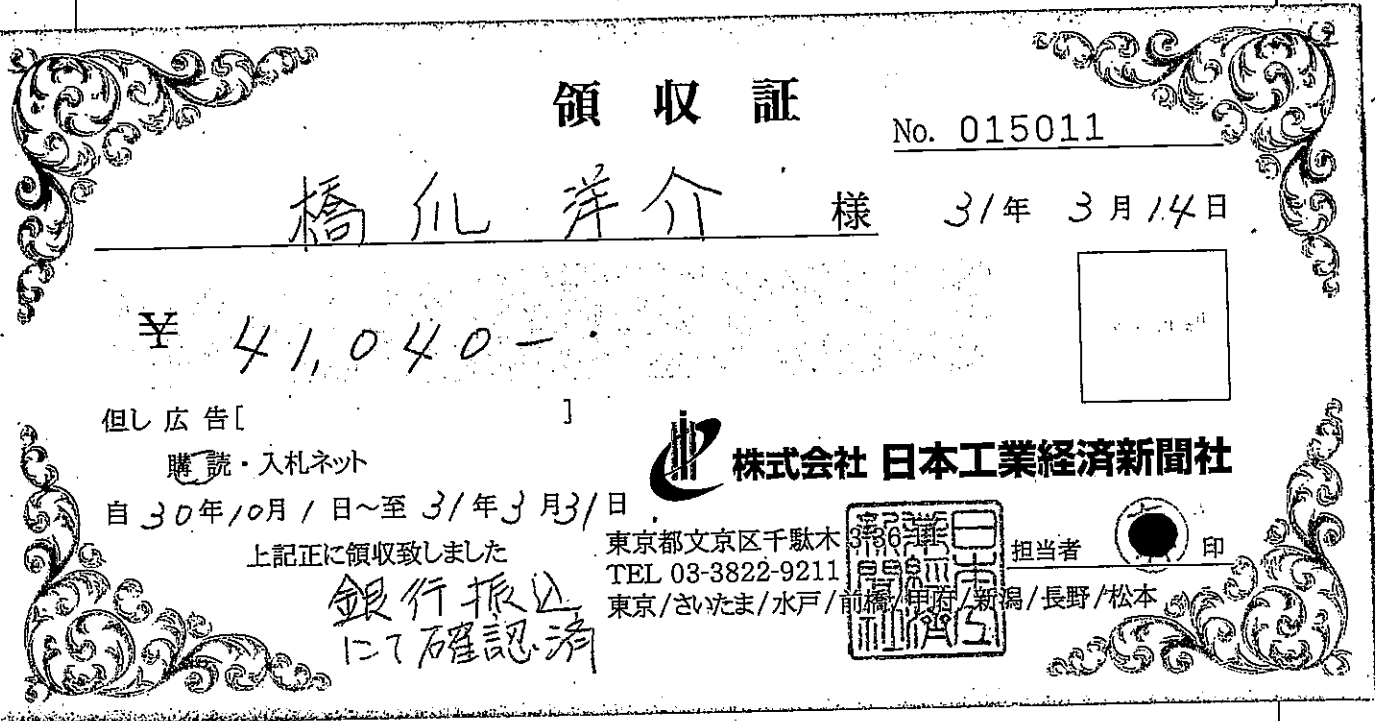 領収証
No. 015011
橋爪 洋介 様
31年 3月14日
¥ 41,040-
但し 広告[ ]
購読・入札ネット
自30年10月1日～至31年3月31日
上記正に領収致しました
銀行振込
にて確認済
株式会社 日本工業経済新聞社
東京都文京区千駄木3-36-11
TEL 03-3822-9211
東京/さいたま/水戸/前橋/甲府/新潟/長野/松本
担当者 印
日本工業経済新聞社